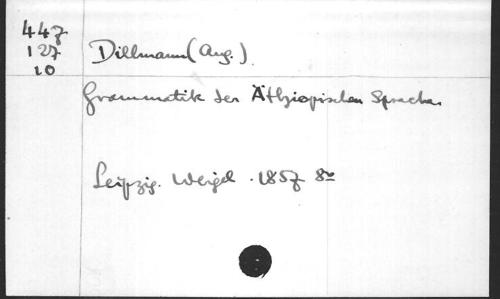 447
127
10
Dillmann (Aug.)
Grammatik der Äthiopischen Sprache.
Leipzig. Weigel. 1857 8vo